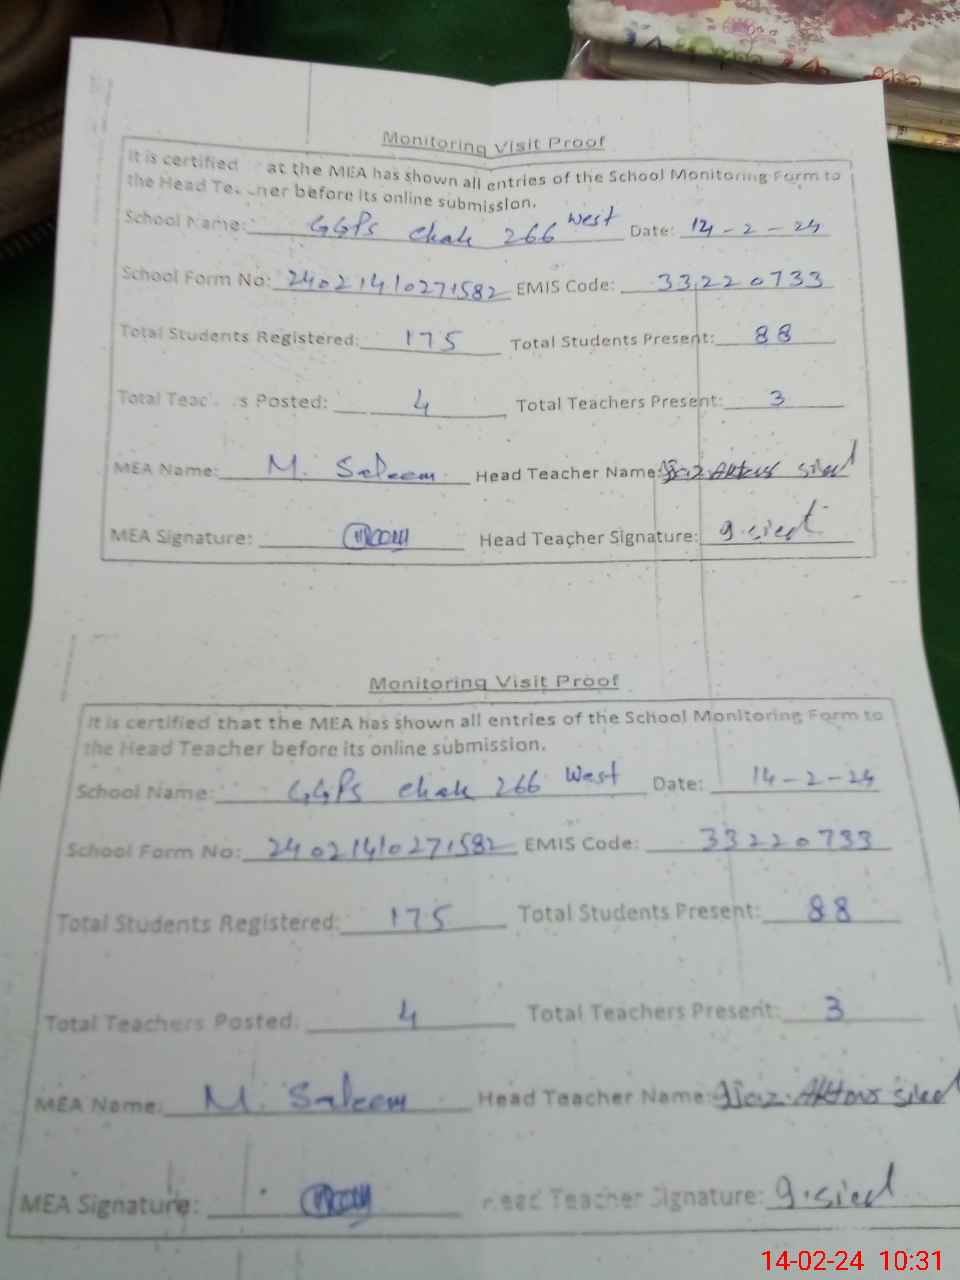 Monitoring Visit Proof
It is certified at the MEA has shown all entries of the School Monitoring Form to
the Head Te ner before its online submission.
School Name: GGPS Chak 266 West Date: 14-2-24
School Form No: 24021410271582 EMIS Code: 33220733
Total Students Registered: 175 Total Students Present: 88
Total Teac s Posted: 4 Total Teachers Present: 3
MEA Name: M. Saleem Head Teacher Name:
MEA Signature: Head Teacher Signature:
Monitoring Visit Proof
It is certified that the MEA has shown all entries of the School Monitoring Form to
the Head Teacher before its online submission.
School Name: GGPS Chak 266 West Date: 14-2-24
School Form No: 24021410271582 EMIS Code: 33220733
Total Students Registered: 175 Total Students Present: 88
Total Teachers Posted: 4 Total Teachers Present: 3
MEA Name: M. Saleem Head Teacher Name:
MEA Signature: Head Teacher Signature:
14-02-24 10:31